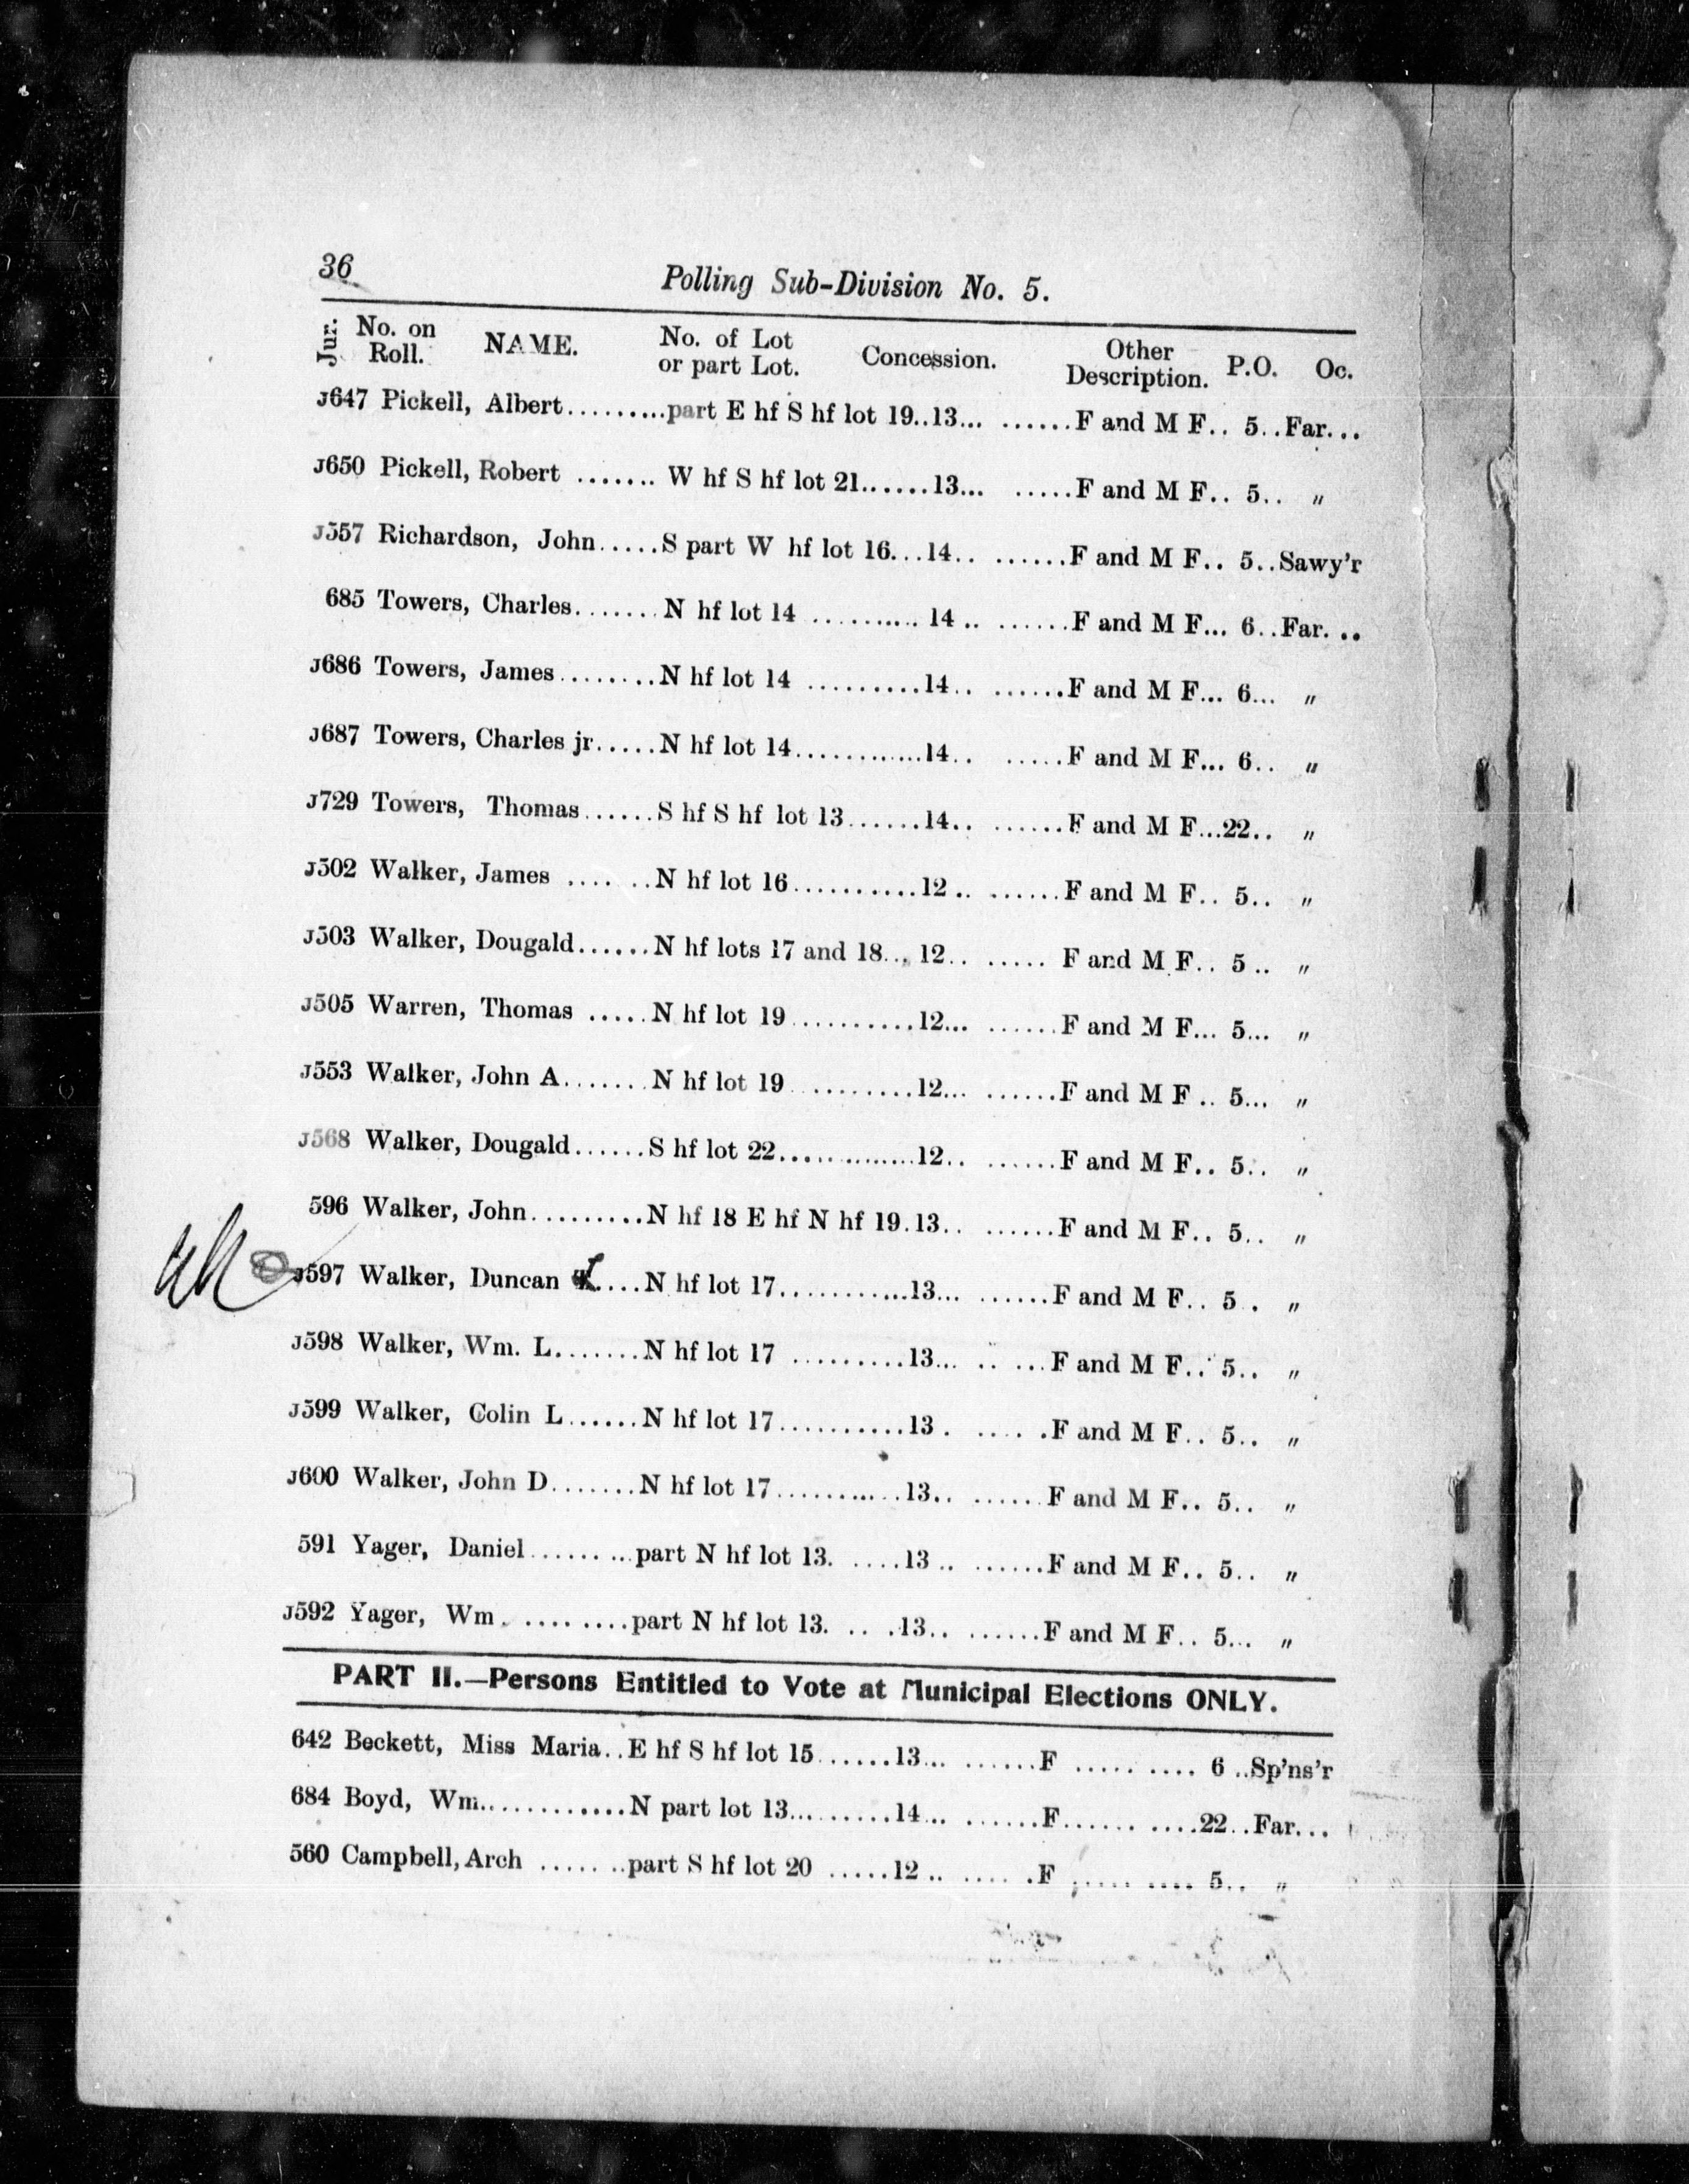 36
Polling Sub-Division No. 5.
Jur. No. on Roll. NAME. No. of Lot or part Lot. Concession. Other Description. P.O. Oc.
J647 Pickell, Albert.........part E hf S hf lot 19..13... ......F and M F.. 5..Far...
J650 Pickell, Robert ....... W hf S hf lot 21......13... .....F and M F.. 5.. "
J557 Richardson, John.....S part W hf lot 16...14.. ......F and M F.. 5..Sawy'r
685 Towers, Charles.......N hf lot 14 .......... 14 .. ......F and M F... 6..Far. ..
J686 Towers, James........N hf lot 14 .........14.. ......F and M F... 6... "
J687 Towers, Charles jr.....N hf lot 14............14.. .....F and M F... 6.. "
J729 Towers, Thomas......S hf S hf lot 13.......14.. ......F and M F...22.. "
J502 Walker, James .......N hf lot 16..........12 .. ......F and M F.. 5.. "
J503 Walker, Dougald......N hf lots 17 and 18... 12.. ..... F and M F.. 5 .. "
J505 Warren, Thomas .....N hf lot 19..........12... ......F and M F... 5... "
J553 Walker, John A.......N hf lot 19 .........12... ......F and M F .. 5... "
J568 Walker, Dougald......S hf lot 22.............12.. ......F and M F.. 5.. "
596 Walker, John.........N hf 18 E hf N hf 19.13.. ......F and M F.. 5.. "
J597 Walker, Duncan ....N hf lot 17............13... ......F and M F.. 5 . "
J598 Walker, Wm. L.......N hf lot 17 .........13... .. ...F and M F.. 5.. "
J599 Walker, Colin L......N hf lot 17..........13 . .... .F and M F.. 5.. "
J600 Walker, John D.......N hf lot 17..........13.. ......F and M F.. 5.. "
591 Yager, Daniel.........part N hf lot 13. ....13 .. ......F and M F.. 5.. "
J592 Yager, Wm. ........part N hf lot 13. .. .13.. ......F and M F.. 5... "
PART II.—Persons Entitled to Vote at Municipal Elections ONLY.
642 Beckett, Miss Maria..E hf S hf lot 15......13... ......F ..... .... 6 ..Sp'ns'r
684 Boyd, Wm............N part lot 13.........14... ......F...... ....22..Far...
560 Campbell, Arch .......part S hf lot 20 .....12 .. .... .F ..... .... 5.. "